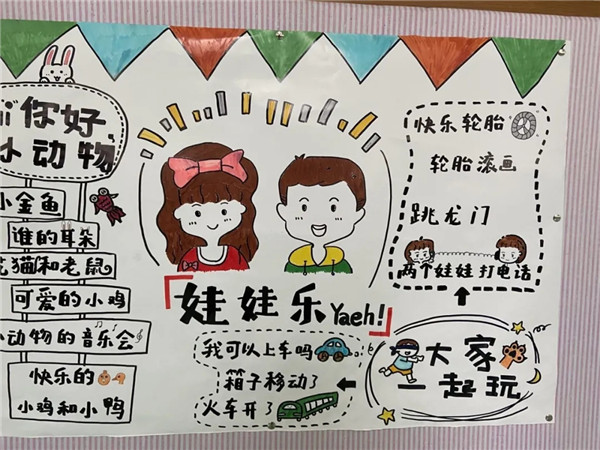 Hi你好,
小动物
小金鱼
谁的耳朵
花猫和老鼠
可爱的小鸡
小动物的音乐会
快乐的
小鸡和小鸭
娃娃乐Yaeh!
我可以上车吗
箱子移动了
火车开了
快乐轮胎
轮胎滚画
跳龙门
两个娃娃打电话
大家
一起玩